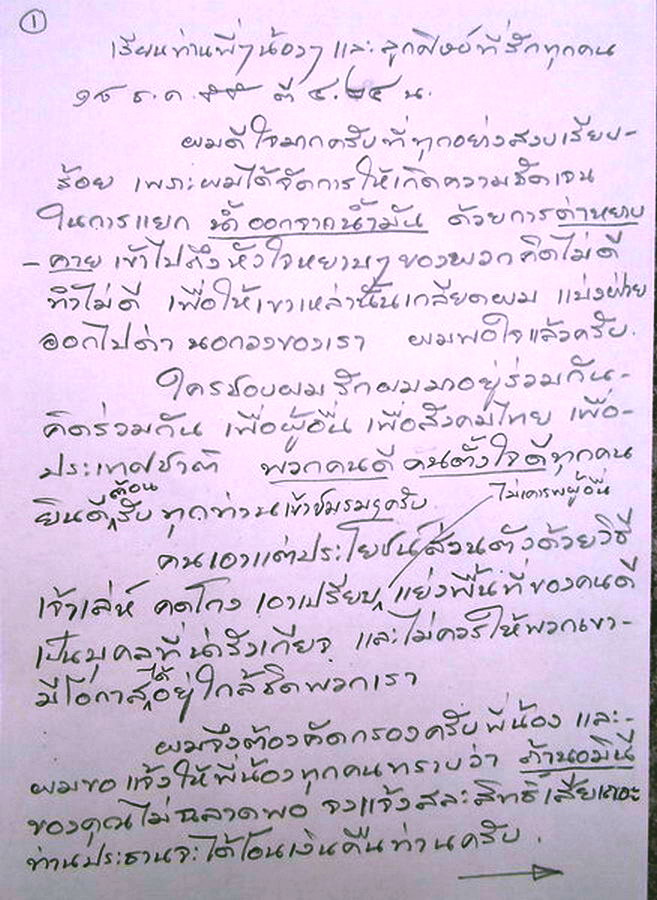 ①
เรียนท่านพี่ๆน้องๆ และ ลูกศิษย์ที่รักทุกคน
๑๕ ธ.ค. ๕๕ ตี ๔.๒๕ น.
ผมดีใจมากครับที่ทุกอย่างสงบเรียบ-
ร้อย เพราะผมได้จัดการให้เกิดความชัดเจน
ในการแยก น้ำออกจากน้ำมัน ด้วยการด่าหยาบ
-คาย เข้าไปถึงหัวใจหยาบๆของพวกคิดไม่ดี
ทำไม่ดี เพื่อให้เขาเหล่านั้นเกลียดผม แบ่งฝ่าย
ออกไปด่า นอกวงของเรา ผมพอใจแล้วครับ.
ใครชอบผม รักผมมาอยู่ร่วมกัน-
คิดร่วมกัน เพื่อผู้อื่น เพื่อสังคมไทย เพื่อ-
ประเทศชาติ พวกคนดี คนตั้งใจดีทุกคน
ยินดีต้อนรับ ทุกท่านเข้าชมรมๆครับ
ไม่เคารพผู้อื่น
คนเอาแต่ประโยชน์ส่วนตัวด้วยวิธี
เจ้าเล่ห์ คดโกง เอาเปรียบ แย่งพื้นที่ของคนดี
เป็นบุคลที่น่ารังเกียจ และไม่ควรให้พวกเขา-
มีโอกาสได้อยู่ใกล้ชิดพวกเรา
ผมจึงต้องคัดกรองครับพี่น้อง และ-
ผมขอแจ้งให้พี่น้องทุกคนทราบว่า ถ้านอมินี
ของคุณไม่ฉลาดพอ จงแจ้งสละสิทธิ์เสียเถอะ
ท่านประธานจะได้โอนเงินคืนท่านครับ.